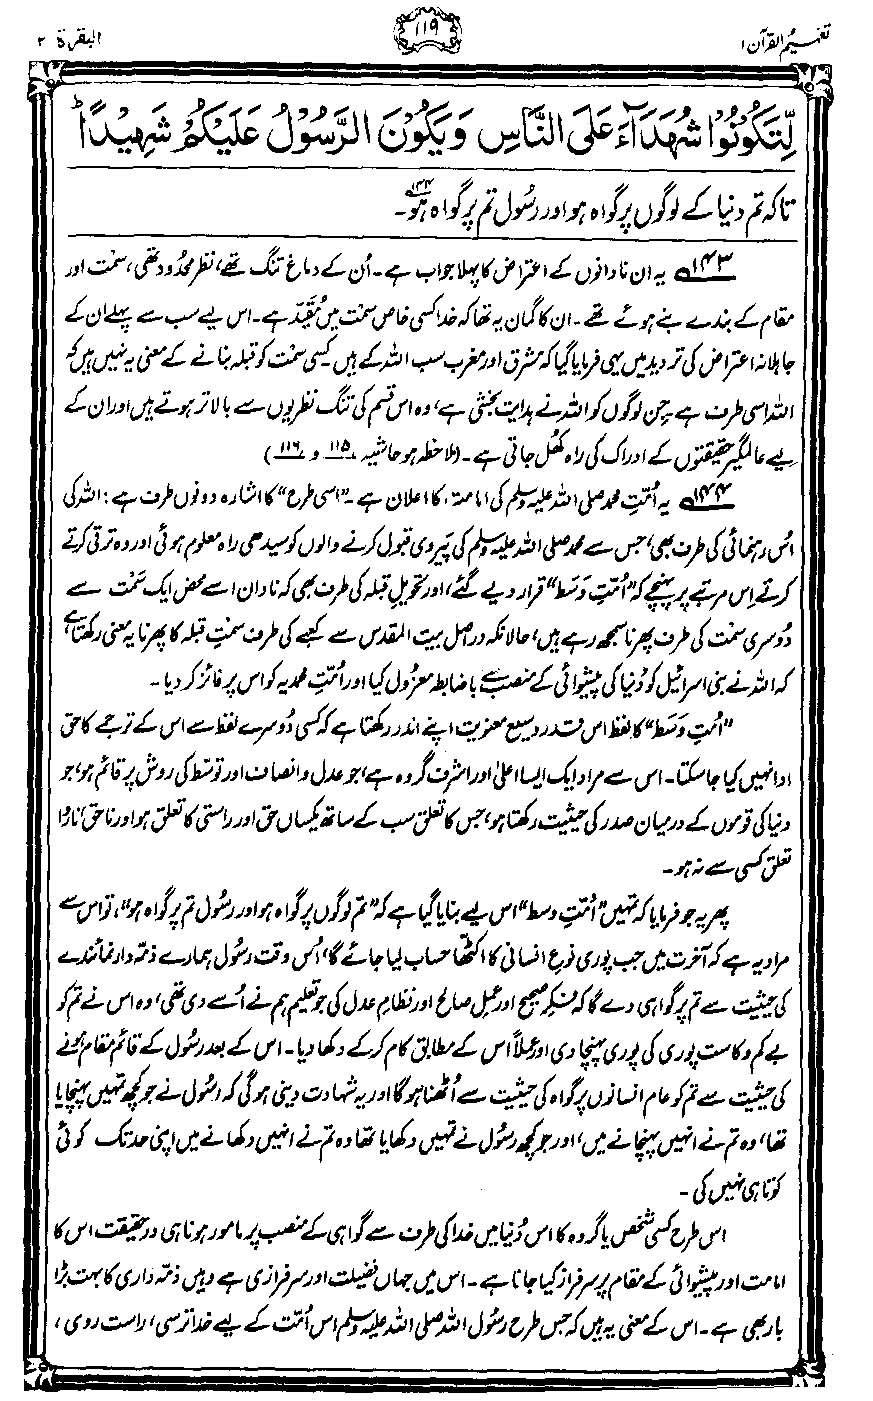 تفہیم القرآن ۱
۱۱۹
البقرۃ ۲
لِّتَكُوْنُوْا شُهَدَآءَ عَلَى النَّاسِ وَيَكُوْنَ الرَّسُوْلُ عَلَيْكُمْ شَهِيْدًا ؕ
تاکہ تم دنیا کے لوگوں پر گواہ ہو اور رسُول تم پر گواہ ہو۱۴۴۔
۱۴۳ یہ ان نادانوں کے اعتراض کا پہلا جواب ہے۔ اُن کے دماغ تنگ تھے، نظر محدُود تھی، سمت اور
مقام کے بندے بنے ہوئے تھے۔ ان کا گمان یہ تھا کہ خدا کسی خاص سمت میں مُقیّد ہے۔ اس لیے سب سے پہلے ان کے
جاہلانہ اعتراض کی تردید میں یہی فرمایا گیا کہ مشرق اور مغرب سب اللہ کے ہیں۔ کسی سمت کو قبلہ بنانے کے معنی یہ نہیں ہیں کہ
اللہ اسی طرف ہے۔ جِن لوگوں کو اللہ نے ہدایت بخشی ہے، وہ اس قسم کی تنگ نظریوں سے بالاتر ہوتے ہیں اور ان کے
لیے عالمگیر حقیقتوں کے ادراک کی راہ کھُل جاتی ہے۔ (ملاحظہ ہو حاشیہ ۱۱۵ و ۱۱۶)
۱۴۴ یہ اُمّتِ محمد صلی اللہ علیہ وسلم کی امامت کا اعلان ہے۔ ”اسی طرح“ کا اشارہ دونوں طرف ہے: اللہ کی
اُس رہنمائی کی طرف بھی، جس سے محمد صلی اللہ علیہ وسلم کی پَیروی قبول کرنے والوں کو سیدھی راہ معلوم ہوئی اور وہ ترقی کرتے
کرتے اِس مرتبے پر پہنچے کہ ”اُمّتِ وَسَط“ قرار دیے گئے، اور تحویلِ قبلہ کی طرف بھی کہ نادان اسے محض ایک سَمْت سے
دُوسری سمت کی طرف پھرنا سمجھ رہے ہیں، حالانکہ دراصل بیت المقدس سے کعبے کی طرف سمتِ قبلہ کا پھرنا یہ معنی رکھتا ہے
کہ اللہ نے بنی اسرائیل کو دُنیا کی پیشوائی کے منصب سے باضابطہ معزُول کیا اور اُمّتِ محمدیہ کو اس پر فائز کر دیا۔
”اُمّتِ وَسَط“ کا لفظ اس قدر وسیع معنویت اپنے اندر رکھتا ہے کہ کسی دُوسرے لفظ سے اس کے ترجمے کا حق
ادا نہیں کیا جا سکتا۔ اس سے مراد ایک ایسا اعلیٰ اور اشرف گروہ ہے، جو عدل و انصاف اور توسّط کی روش پر قائم ہو، جو
دنیا کی قوموں کے درمیان صدر کی حیثیت رکھتا ہو، جس کا تعلق سب کے ساتھ یکساں حق اور راستی کا تعلق ہو اور ناحق، ناروا
تعلق کسی سے نہ ہو۔
پھر یہ جو فرمایا کہ تمہیں ”اُمّتِ وسط“ اس لیے بنایا گیا ہے کہ ”تم لوگوں پر گواہ ہو اور رسُول تم پر گواہ ہو“، تو اس سے
مراد یہ ہے کہ آخرت میں جب پوری نوعِ انسانی کا اکٹھا حساب لیا جائے گا، اُس وقت رسُول ہمارے ذمّہ دار نمائندے
کی حیثیت سے تم پر گواہی دے گا کہ فکرِ صحیح اور عملِ صالح اور نظامِ عدل کی جو تعلیم ہم نے اُسے دی تھی، وہ اس نے تم کو
بے کم و کاست پوری کی پوری پہنچا دی اور عملاً اس کے مطابق کام کرکے دکھا دیا۔ اس کے بعد رسُول کے قائم مقام ہونے
کی حیثیت سے تم کو عام انسانوں پر گواہ کی حیثیت سے اُٹھنا ہوگا اور یہ شہادت دینی ہوگی کہ رسُول نے جو کچھ تمہیں پہنچایا
تھا، وہ تم نے انہیں پہنچانے میں، اور جو کچھ رسُول نے تمہیں دکھایا تھا وہ تم نے انہیں دکھانے میں اپنی حد تک کوئی
کوتاہی نہیں کی۔
اس طرح کسی شخص یا گروہ کا اس دُنیا میں خدا کی طرف سے گواہی کے منصب پر مامور ہونا ہی درحقیقت اس کا
امامت اور پیشوائی کے مقام پر سرفراز کیا جانا ہے۔ اس میں جہاں فضیلت اور سرفرازی ہے وہیں ذمّہ داری کا بہت بڑا
بار بھی ہے۔ اس کے معنی یہ ہیں کہ جس طرح رسُول اللہ صلی اللہ علیہ وسلم اس اُمّت کے لیے خدا ترسی، راست روی،